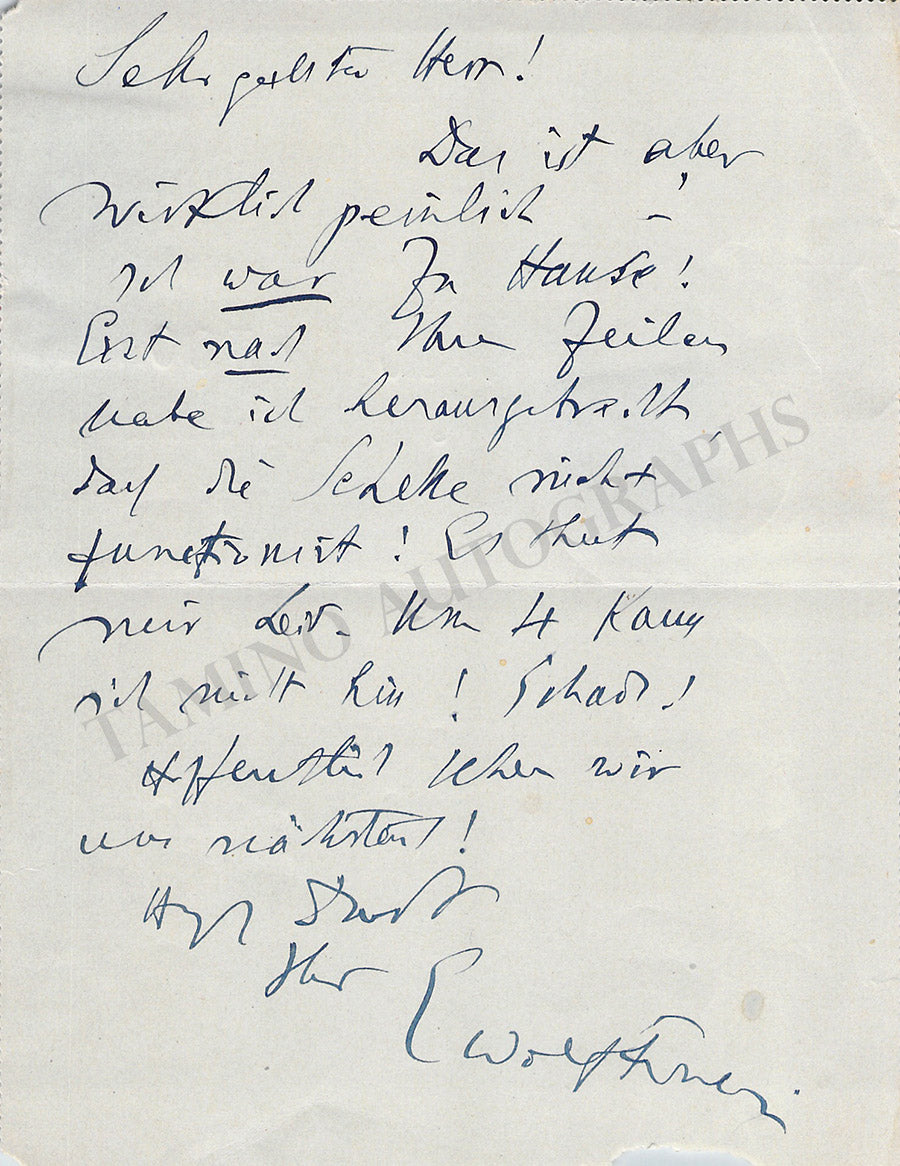 Sehr geehrter Herr!
Das ist aber
wirklich peinlich –!
ich war zu Hause!
Erst nach Ihren Zeilen
habe ich herausgebracht
daß die Schelle nicht
funktioniert! Es thut
mir Leid. Um 4 kann
ich nicht hin! Schade!
Hoffentlich sehen wir
uns nächstens!
Ihr
E Wolf-Ferrari
TAMINO AUTOGRAPHS